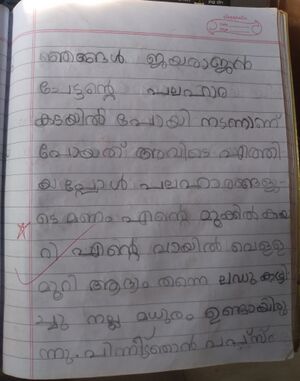 ഞങ്ങൾ ജയരാജൻ
ചേട്ടന്റെ പലഹാര
കടയിൽ പോയി നടന്നാണ്
പോയത് അവിടെ എത്തി
യപ്പോൾ പലഹാരങ്ങളു-
ടെ മണം എന്റെ മൂക്കിൽ കയ
റി എന്റെ വായിൽ വെള്ള
മൂറി ആദ്യം തന്നെ ലഡു കഴി
ച്ചു നല്ല മധുരം ഉണ്ടായിരു
ന്നു. പിന്നീട് ഞാൻ പഫ്സ്